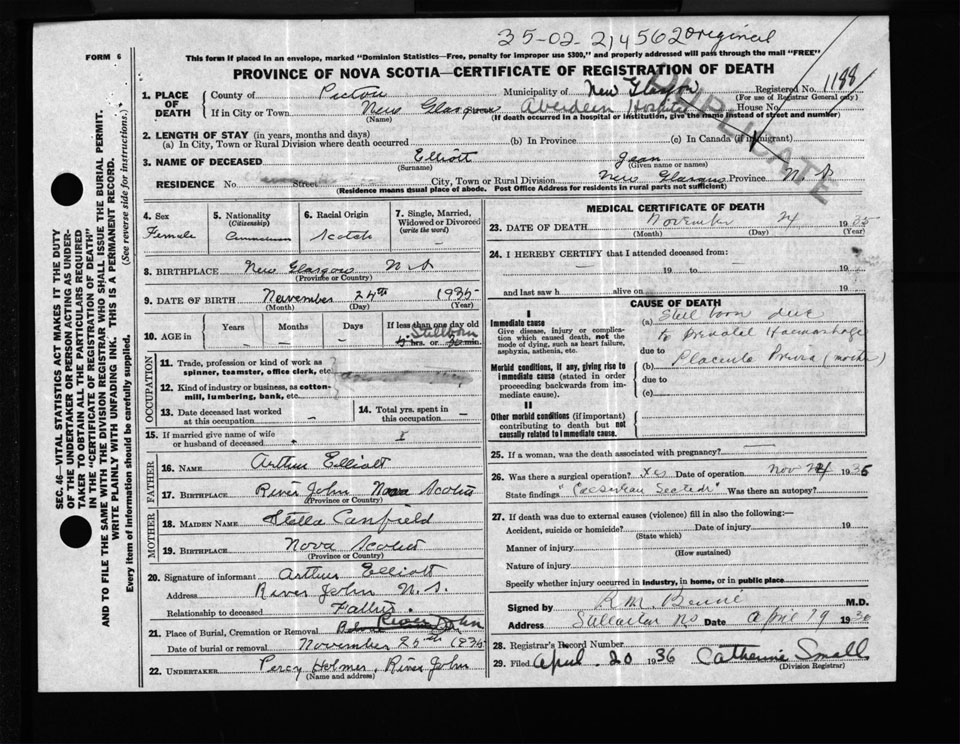 35-02-214562 Original
FORM 6
This form if placed in an envelope, marked "Dominion Statistics—Free, penalty for improper use $300," and properly addressed will pass through the mail "FREE"
PROVINCE OF NOVA SCOTIA—CERTIFICATE OF REGISTRATION OF DEATH
DUPLICATE
1. PLACE OF DEATH
County of Pictou Municipality of New Glasgow Registered No. 1188
(For use of Registrar General only)
If in City or Town New Glasgow Aberdeen Hospital House No.
(Name) (If death occurred in a hospital or institution, give the name instead of street and number)
2. LENGTH OF STAY (in years, months and days)
(a) In City, Town or Rural Division where death occurred (b) In Province (c) In Canada (if immigrant)
3. NAME OF DECEASED Elliott Jean
(Surname) (Given name or names)
RESIDENCE No Street City, Town or Rural Division New Glasgow Province N S
(Residence means usual place of abode. Post Office Address for residents in rural parts not sufficient)
SEC. 46—VITAL STATISTICS ACT MAKES IT THE DUTY
OF THE UNDERTAKER OR PERSON ACTING AS UNDER-
TAKER TO OBTAIN ALL THE PARTICULARS REQUIRED
IN THE "CERTIFICATE OF REGISTRATION OF DEATH"
AND TO FILE THE SAME WITH THE DIVISION REGISTRAR WHO SHALL ISSUE THE BURIAL PERMIT.
WRITE PLAINLY WITH UNFADING INK. THIS IS A PERMANENT RECORD.
Every item of information should be carefully supplied. (See reverse side for instructions.)
4. Sex
Female
5. Nationality
(Citizenship)
6. Racial Origin
Scotch
7. Single, Married, Widowed or Divorced
(write the word)
—
8. BIRTHPLACE New Glasgow N S
(Province or Country)
9. DATE OF BIRTH November 24th 1935
(Month) (Day) (Year)
10. AGE in
Years Months Days If less than one day old
– – – Stillborn
hrs. or min.
OCCUPATION
11. Trade, profession or kind of work as spinner, teamster, office clerk, etc.
12. Kind of industry or business, as cotton-mill, lumbering, bank, etc.
13. Date deceased last worked at this occupation –
14. Total yrs. spent in this occupation –
15. If married give name of wife or husband of deceased
FATHER
16. NAME Arthur Elliott
17. BIRTHPLACE River John Nova Scotia
(Province or Country)
MOTHER
18. MAIDEN NAME Stella Canfield
19. BIRTHPLACE Nova Scotia
(Province or Country)
20. Signature of informant Arthur Elliott
Address River John N.S.
Relationship to deceased Father.
21. Place of Burial, Cremation or Removal River John
Date of burial or removal November 25th 1935
22. UNDERTAKER Percy Holmes, River John
(Name and address)
MEDICAL CERTIFICATE OF DEATH
23. DATE OF DEATH November 24 1935
(Month) (Day) (Year)
24. I HEREBY CERTIFY that I attended deceased from:
19 to 19
and last saw h alive on 19
CAUSE OF DEATH
I
Immediate cause
Give disease, injury or complication which caused death, not the mode of dying, such as heart failure, asphyxia, asthenia, etc.
(a) Still born due
to Prenatal Haemorrhage
due to
(b) Placenta Previa (mother)
Morbid conditions, if any, giving rise to immediate cause (stated in order proceeding backwards from immediate cause).
due to
(c)
II
Other morbid conditions (if important) contributing to death but not causally related to immediate cause.
25. If a woman, was the death associated with pregnancy?
26. Was there a surgical operation? Yes Date of operation Nov 24 1935
State findings "Caesarean Section" Was there an autopsy?
27. If death was due to external causes (violence) fill in also the following:—
Accident, suicide or homicide? Date of injury 19
(State which)
Manner of injury
(How sustained)
Nature of injury
Specify whether injury occurred in industry, in home, or in public place
Signed by M.D.
Address Date April 19 1936
28. Registrar's Record Number
29. Filed April 20 1936 Catherine Small
(Division Registrar)